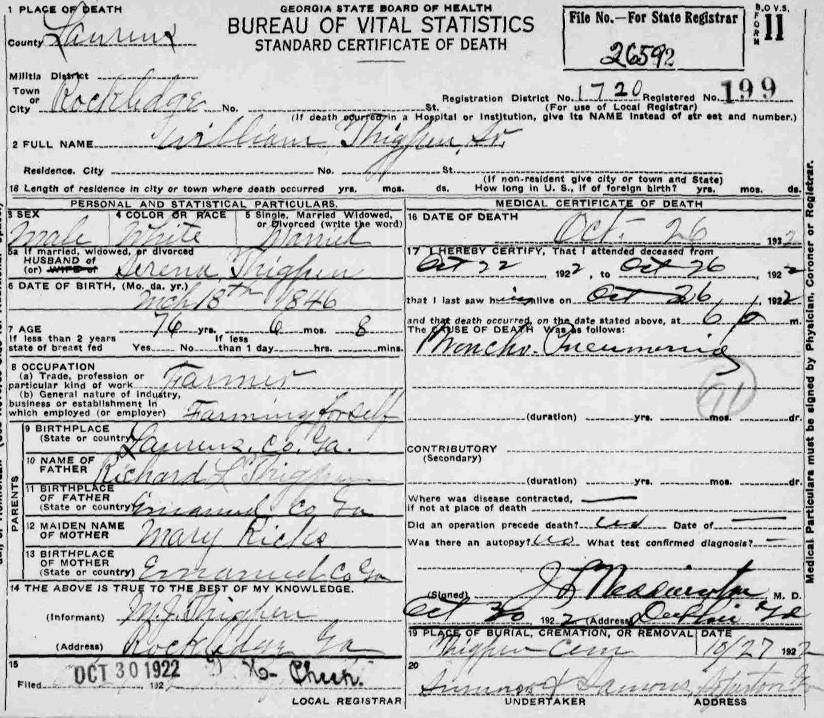 1 PLACE OF DEATH
County Laurens
Militia District
Town or City Rockledge No. St.
GEORGIA STATE BOARD OF HEALTH
BUREAU OF VITAL STATISTICS
STANDARD CERTIFICATE OF DEATH
File No.—For State Registrar
26592
B.O.V.S. FORM 11
Registration District No. 1720 Registered No. 199
(For use of Local Registrar)
(If death ocurred in a Hospital or Institution, give its NAME instead of str eet and number.)
2 FULL NAME William Thigpen, Sr.
Residence. City No. St.
(If non-resident give city or town and State)
18 Length of residence in city or town where death occurred yrs. mos. ds. How long in U. S., if of foreign birth? yrs. mos. ds.
PERSONAL AND STATISTICAL PARTICULARS.
3 SEX 4 COLOR OR RACE 5 Single, Married Widowed, or Divorced (write the word)
Male White Married
5a If married, widowed, or divorced
HUSBAND of
(or) WIFE of Serena Thigpen
6 DATE OF BIRTH, (Mo. da. yr.)
Mch 18th 1846
7 AGE 76 yrs. 6 mos. 8
If less than 2 years state of breast fed Yes No If less than 1 day hrs. mins.
8 OCCUPATION
(a) Trade, profession or particular kind of work Farmer
(b) General nature of industry, business or establishment in which employed (or employer) Farming for self
PARENTS
9 BIRTHPLACE (State or country) Laurens, Co. Ga.
10 NAME OF FATHER Richard L Thigpen
11 BIRTHPLACE OF FATHER (State or country) Emanuel Co Ga
12 MAIDEN NAME OF MOTHER Mary Ricks
13 BIRTHPLACE OF MOTHER (State or country) Emanuel Co Ga
14 THE ABOVE IS TRUE TO THE BEST OF MY KNOWLEDGE.
(Informant) M. J. Thigpen
(Address) Rockledge Ga
15
Filed OCT 30 1922 192
LOCAL REGISTRAR
MEDICAL CERTIFICATE OF DEATH
16 DATE OF DEATH
Oct. 26 1922
17 I HEREBY CERTIFY, That I attended deceased from
Oct 22 1922, to Oct 26, 1922
that I last saw him alive on Oct 26 1922
and that death occurred, on the date stated above, at 6 P m.
The CAUSE OF DEATH Was as follows:
Broncho-Pneumonia
91
(duration) yrs. mos. dr.
CONTRIBUTORY
(Secondary)
(duration) yrs. mos. dr.
Where was disease contracted, if not at place of death
Did an operation precede death? no Date of
Was there an autopsy? no What test confirmed diagnosis?
(Signed) M. D.
Oct 30 1922 (Address)
19 PLACE OF BURIAL, CREMATION, OR REMOVAL DATE
Thigpen Cem 10/27 1922
20
UNDERTAKER ADDRESS
Medical Particulars must be signed by Physician, Coroner or Registrar.